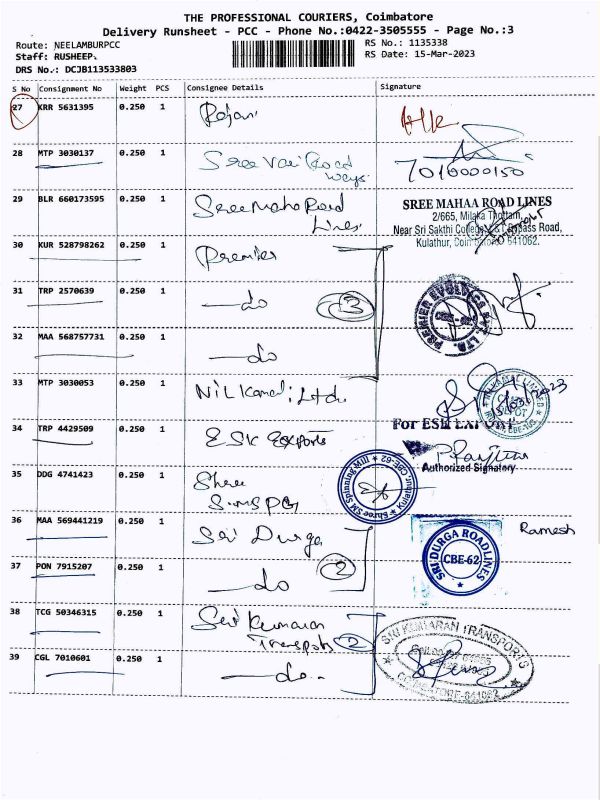 THE PROFESSIONAL COURIERS, Coimbatore
Delivery Runsheet - PCC - Phone No.:0422-3505555 - Page No.:3
Route: NEELAMBURPCC
RS No.: 1135338
Staff: RUSHEEP.
RS Date: 15-Mar-2023
DRS No.: DCJB113533803
S No Consignment No Weight PCS Consignee Details Signature
27 KRR 5631395 0.250 1 Rajan
28 MTP 3030137 0.250 1 Sree Vari Road
Ways
7010000150
29 BLR 660173595 0.250 1 Sree Maha Road
Lines
SREE MAHAA ROAD LINES
2/665, Milaka Thottam,
Near Sri Sakthi College, L&T Bypass Road,
Kulathur, Coimbatore 641062.
30 KUR 528798262 0.250 1 Premier
31 TRP 2570639 0.250 1 do 3
PREMIER EVOLVICS PVT. LTD.
CBE-62
32 MAA 568757731 0.250 1 do
33 MTP 3030053 0.250 1 Nilkamal Ltd
15/03/2023
34 TRP 4429509 0.250 1 ESK Exports
For ESK EXPORT
Authorized Signatory
35 DDG 4741423 0.250 1 Shree
S.M.S.P.G
Shree SM Spinning Mill Kulathur, CBE-62
36 MAA 569441219 0.250 1 Sri Durga
Ramesh
37 PON 7915207 0.250 1 do 2
SRI DURGA ROADLINES
CBE-62
38 TCG 50346315 0.250 1 Sri Kumaran
Transports 2
SRI KUMARAN TRANSPORTS
COIMBATORE-641062
39 CGL 7010601 0.250 1 do.